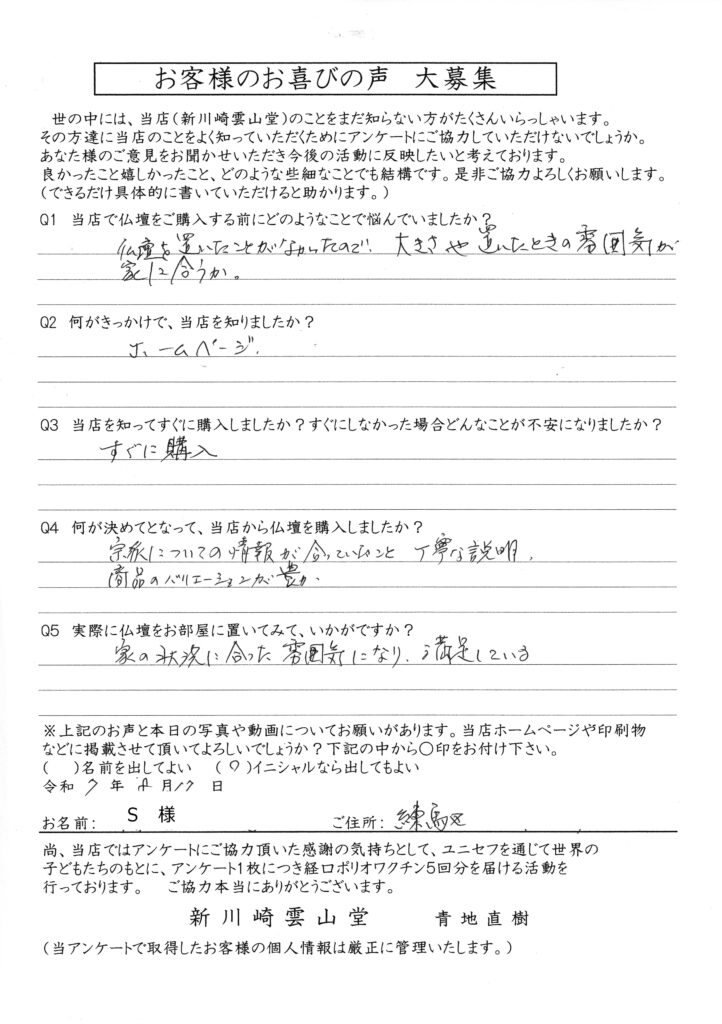 お客様のお喜びの声 大募集
世の中には、当店(新川崎雲山堂)のことをまだ知らない方がたくさんいらっしゃいます。
その方達に当店のことをよく知っていただくためにアンケートにご協力していただけないでしょうか。
あなた様のご意見をお聞かせいただき今後の活動に反映したいと考えております。
良かったこと嬉しかったこと、どのような些細なことでも結構です。是非ご協力よろしくお願いします。
(できるだけ具体的に書いていただけると助かります。)
Q1 当店で仏壇をご購入する前にどのようなことで悩んでいましたか?
仏壇を置いたことがなかったので、大きさや置いたときの雰囲気が
家に合うか。
Q2 何がきっかけで、当店を知りましたか?
ホームページ.
Q3 当店を知ってすぐに購入しましたか?すぐにしなかった場合どんなことが不安になりましたか?
すぐに購入
Q4 何が決めてとなって、当店から仏壇を購入しましたか?
宗派についての情報が合っていたこと 丁寧な説明.
商品のバリエーションが豊か.
Q5 実際に仏壇をお部屋に置いてみて、いかがですか?
家の状況に合った雰囲気になり、満足している
※上記のお声と本日の写真や動画についてお願いがあります。当店ホームページや印刷物
などに掲載させて頂いてよろしいでしょうか?下記の中から〇印をお付け下さい。
( )名前を出してよい (〇)イニシャルなら出してもよい
令和 7 年 月 17 日
お名前: S 様 ご住所: 練馬区
尚、当店ではアンケートにご協力頂いた感謝の気持ちとして、ユニセフを通じて世界の
子どもたちのもとに、アンケート1枚につき経口ポリオワクチン5回分を届ける活動を
行っております。 ご協力本当にありがとうございます。
新川崎雲山堂 青地直樹
(当アンケートで取得したお客様の個人情報は厳正に管理いたします。)